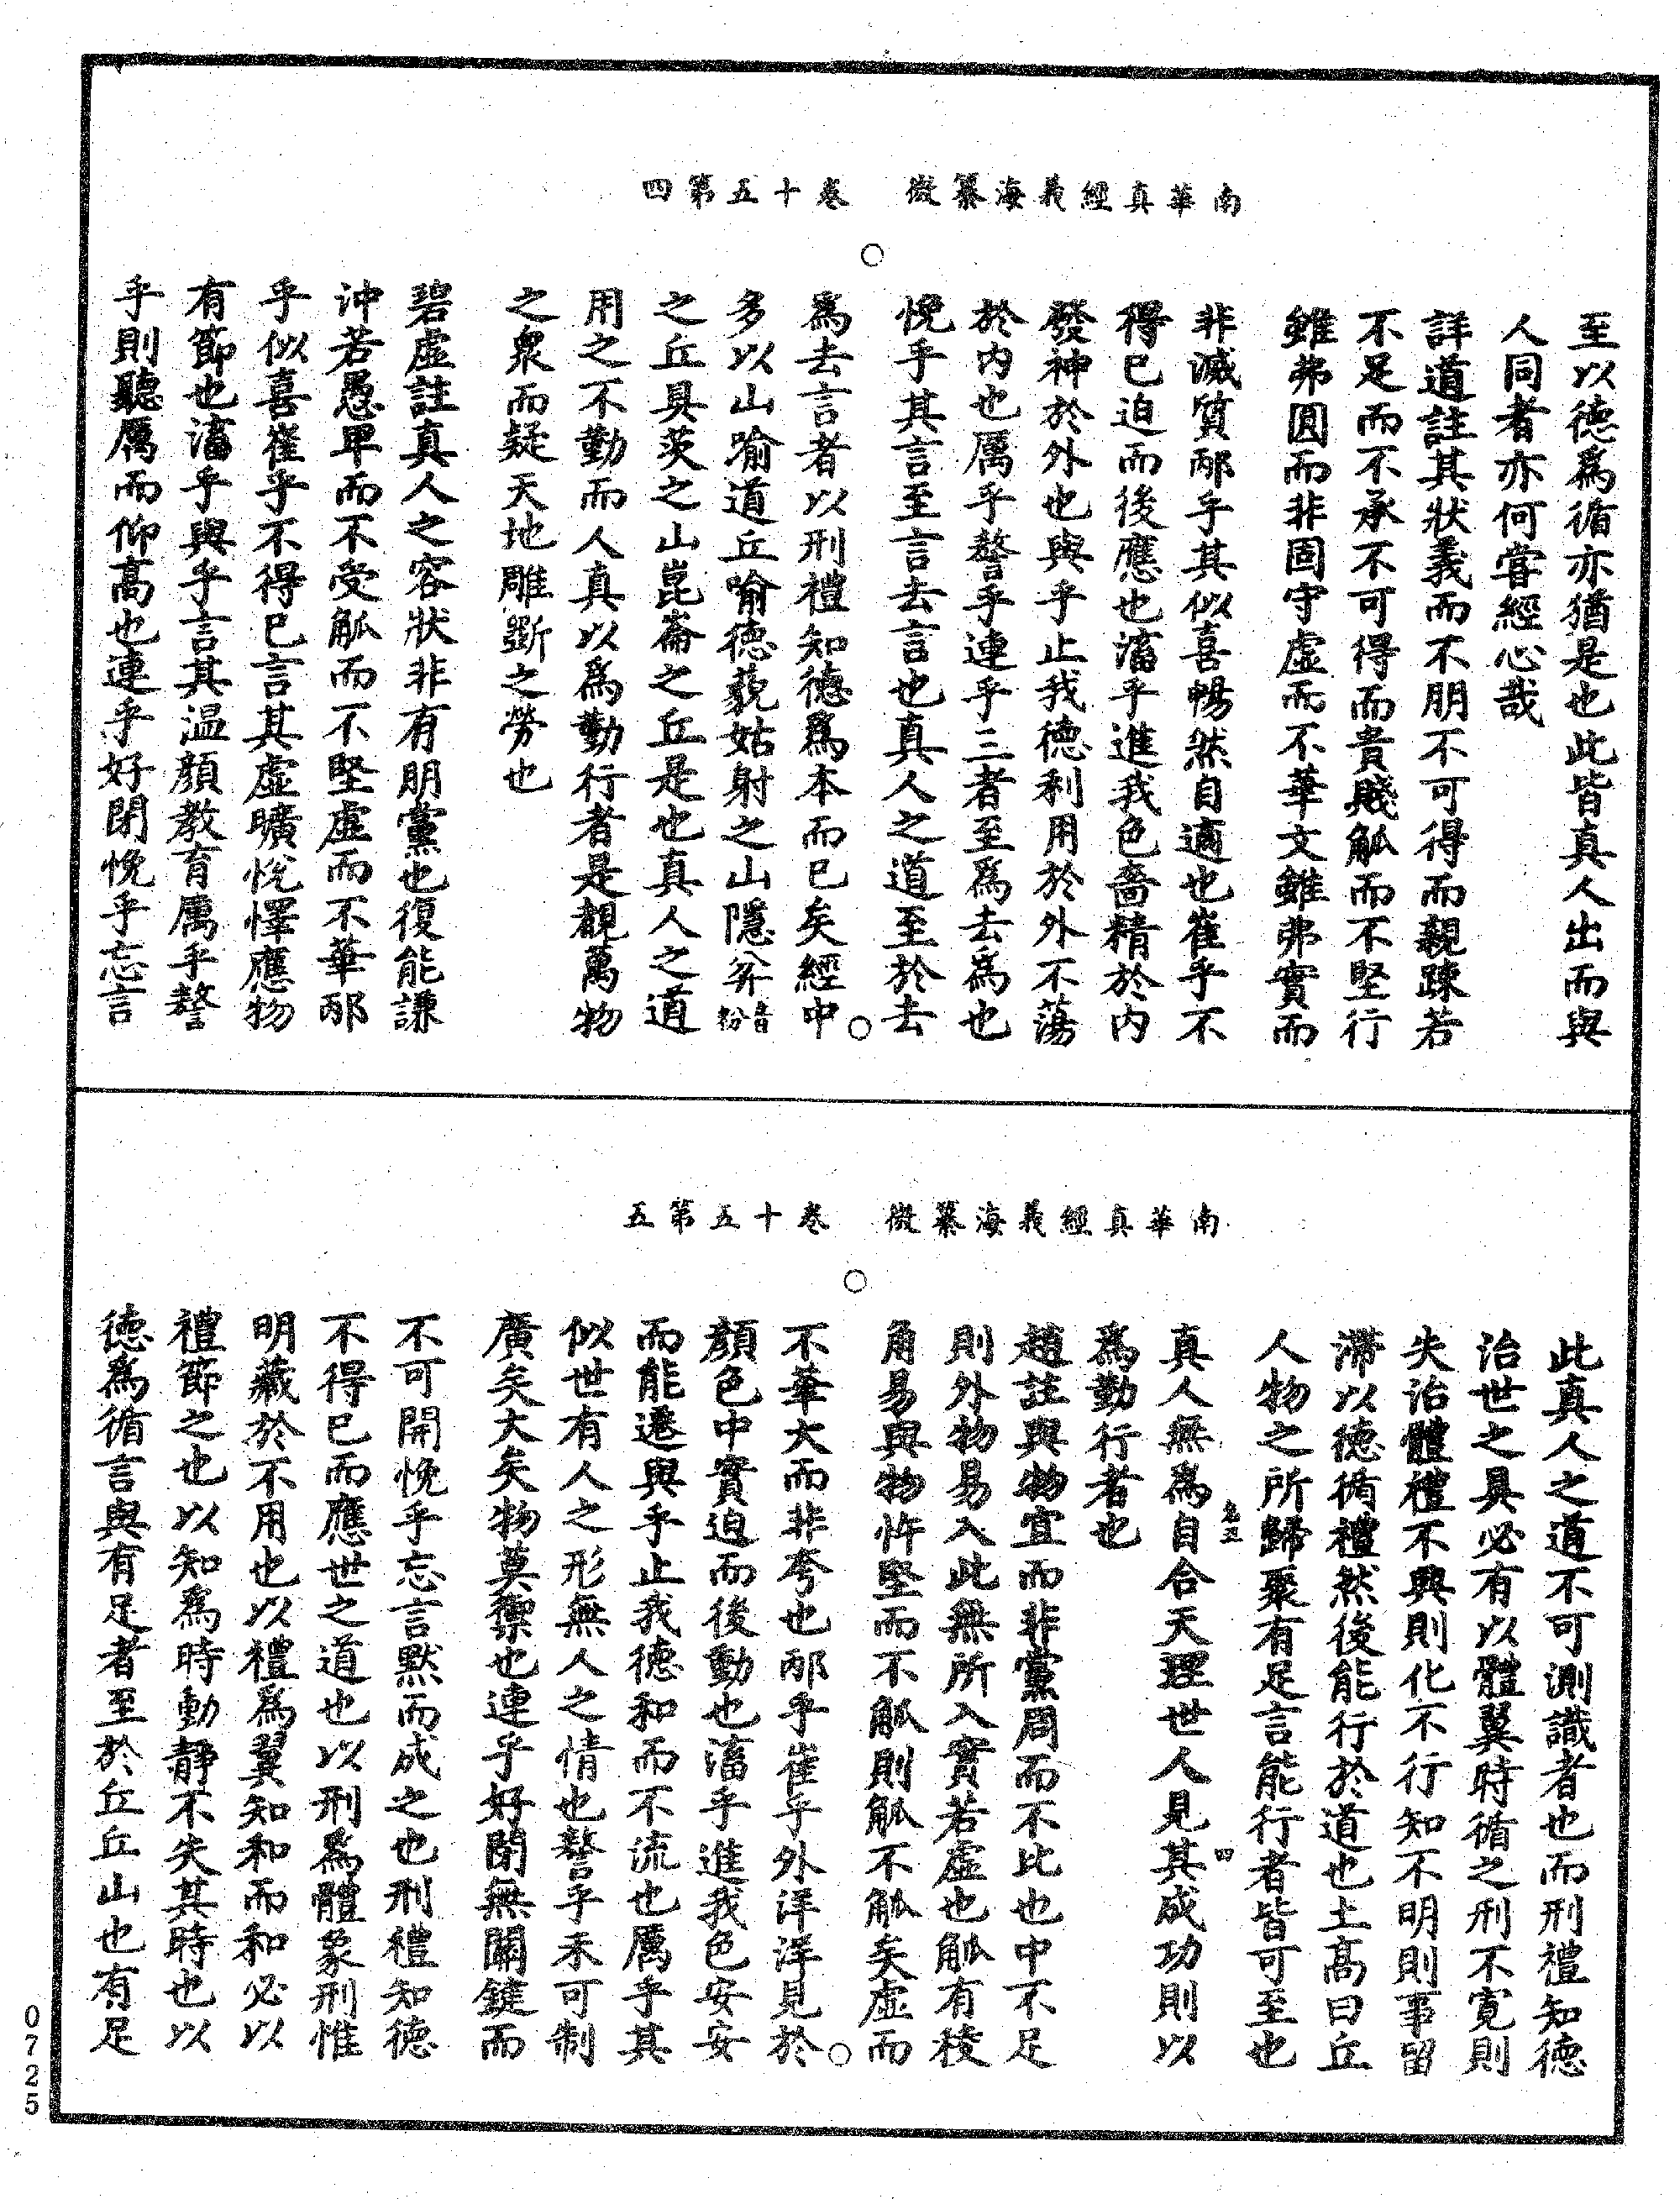 南華真經義海纂微　卷十五第四
至以德爲循亦猶是也此皆真人出而與
人同者亦何嘗經心哉
詳道註其狀義而不朋不可得而親踈若
不足而不承不可得而貴賤觚而不堅行
雖弗圓而非固守虛而不華文雖弗實而
非滅質邴乎其似喜暢然自適也崔乎不
得已迫而後應也滀乎進我色嗇精於内
發神於外也與乎止我德利用於外不蕩
於内也厲乎謷乎連乎三者至爲去爲也
悗乎其言至言去言也真人之道至於去
爲去言者以刑禮知德爲本而已矣經中
多以山喻道丘喻德藐姑射之山隱弅音粉
之丘具茨之山崑崙之丘是也真人之道
用之不勤而人真以爲勤行者是覩萬物
之衆而疑天地雕斲之勞也
碧虛註真人之容狀非有朋黨也復能謙
沖若愚卑而不受觚而不堅虛而不華邴
乎似喜崔乎不得已言其虛曠悅懌應物
有節也滀乎與乎言其温顏教育厲乎謷
乎則聽厲而仰高也連乎好閉悗乎忘言
南華真經義海纂微　卷十五第五
此真人之道不可測識者也而刑禮知德
治世之具必有以體翼時循之刑不寬則
失治體禮不興則化不行知不明則事留
滯以德循禮然後能行於道也土高曰丘
人物之所歸聚有足言能行者皆可至也
真人無爲自合天理世人見其成功則以
爲勤行者也
趙註與物宜而非黨周而不比也中不足
則外物易入此無所入實若虛也觚有稜
角易與物忤堅而不觚則觚不觚矣虛而
不華大而非夸也邴乎崔乎外洋洋見於
顏色中實迫而後動也滀乎進我色安安
而能遷與乎止我德和而不流也厲乎其
似世有人之形無人之情也謷乎未可制
廣矣大矣物莫禦也連乎好閉無關鍵而
不可開悗乎忘言默而成之也刑禮知德
不得已而應世之道也以刑爲體象刑惟
明藏於不用也以禮爲翼知和而和必以
禮節之也以知爲時動静不失其時也以
德爲循言與有足者至於丘丘山也有足
0725